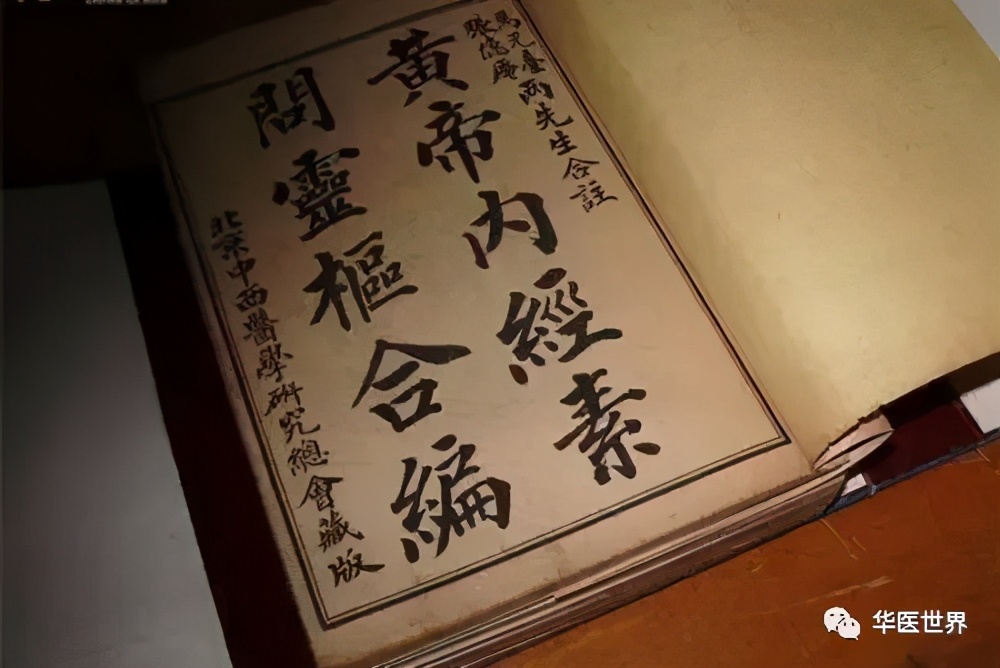 馬元臺
張隱庵
兩先生合註
黃帝內經素
問靈樞合編
北京中西醫學研究總會藏版
华医世界